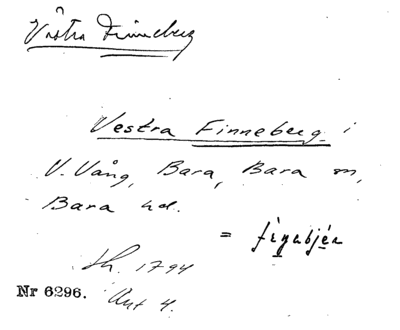 Västra Finneberg
Vestra Finneberg i
V. Vång, Bara, Bara sn,
Bara hd.
=
Sk. 1794
Nr 6296. Akt 4.